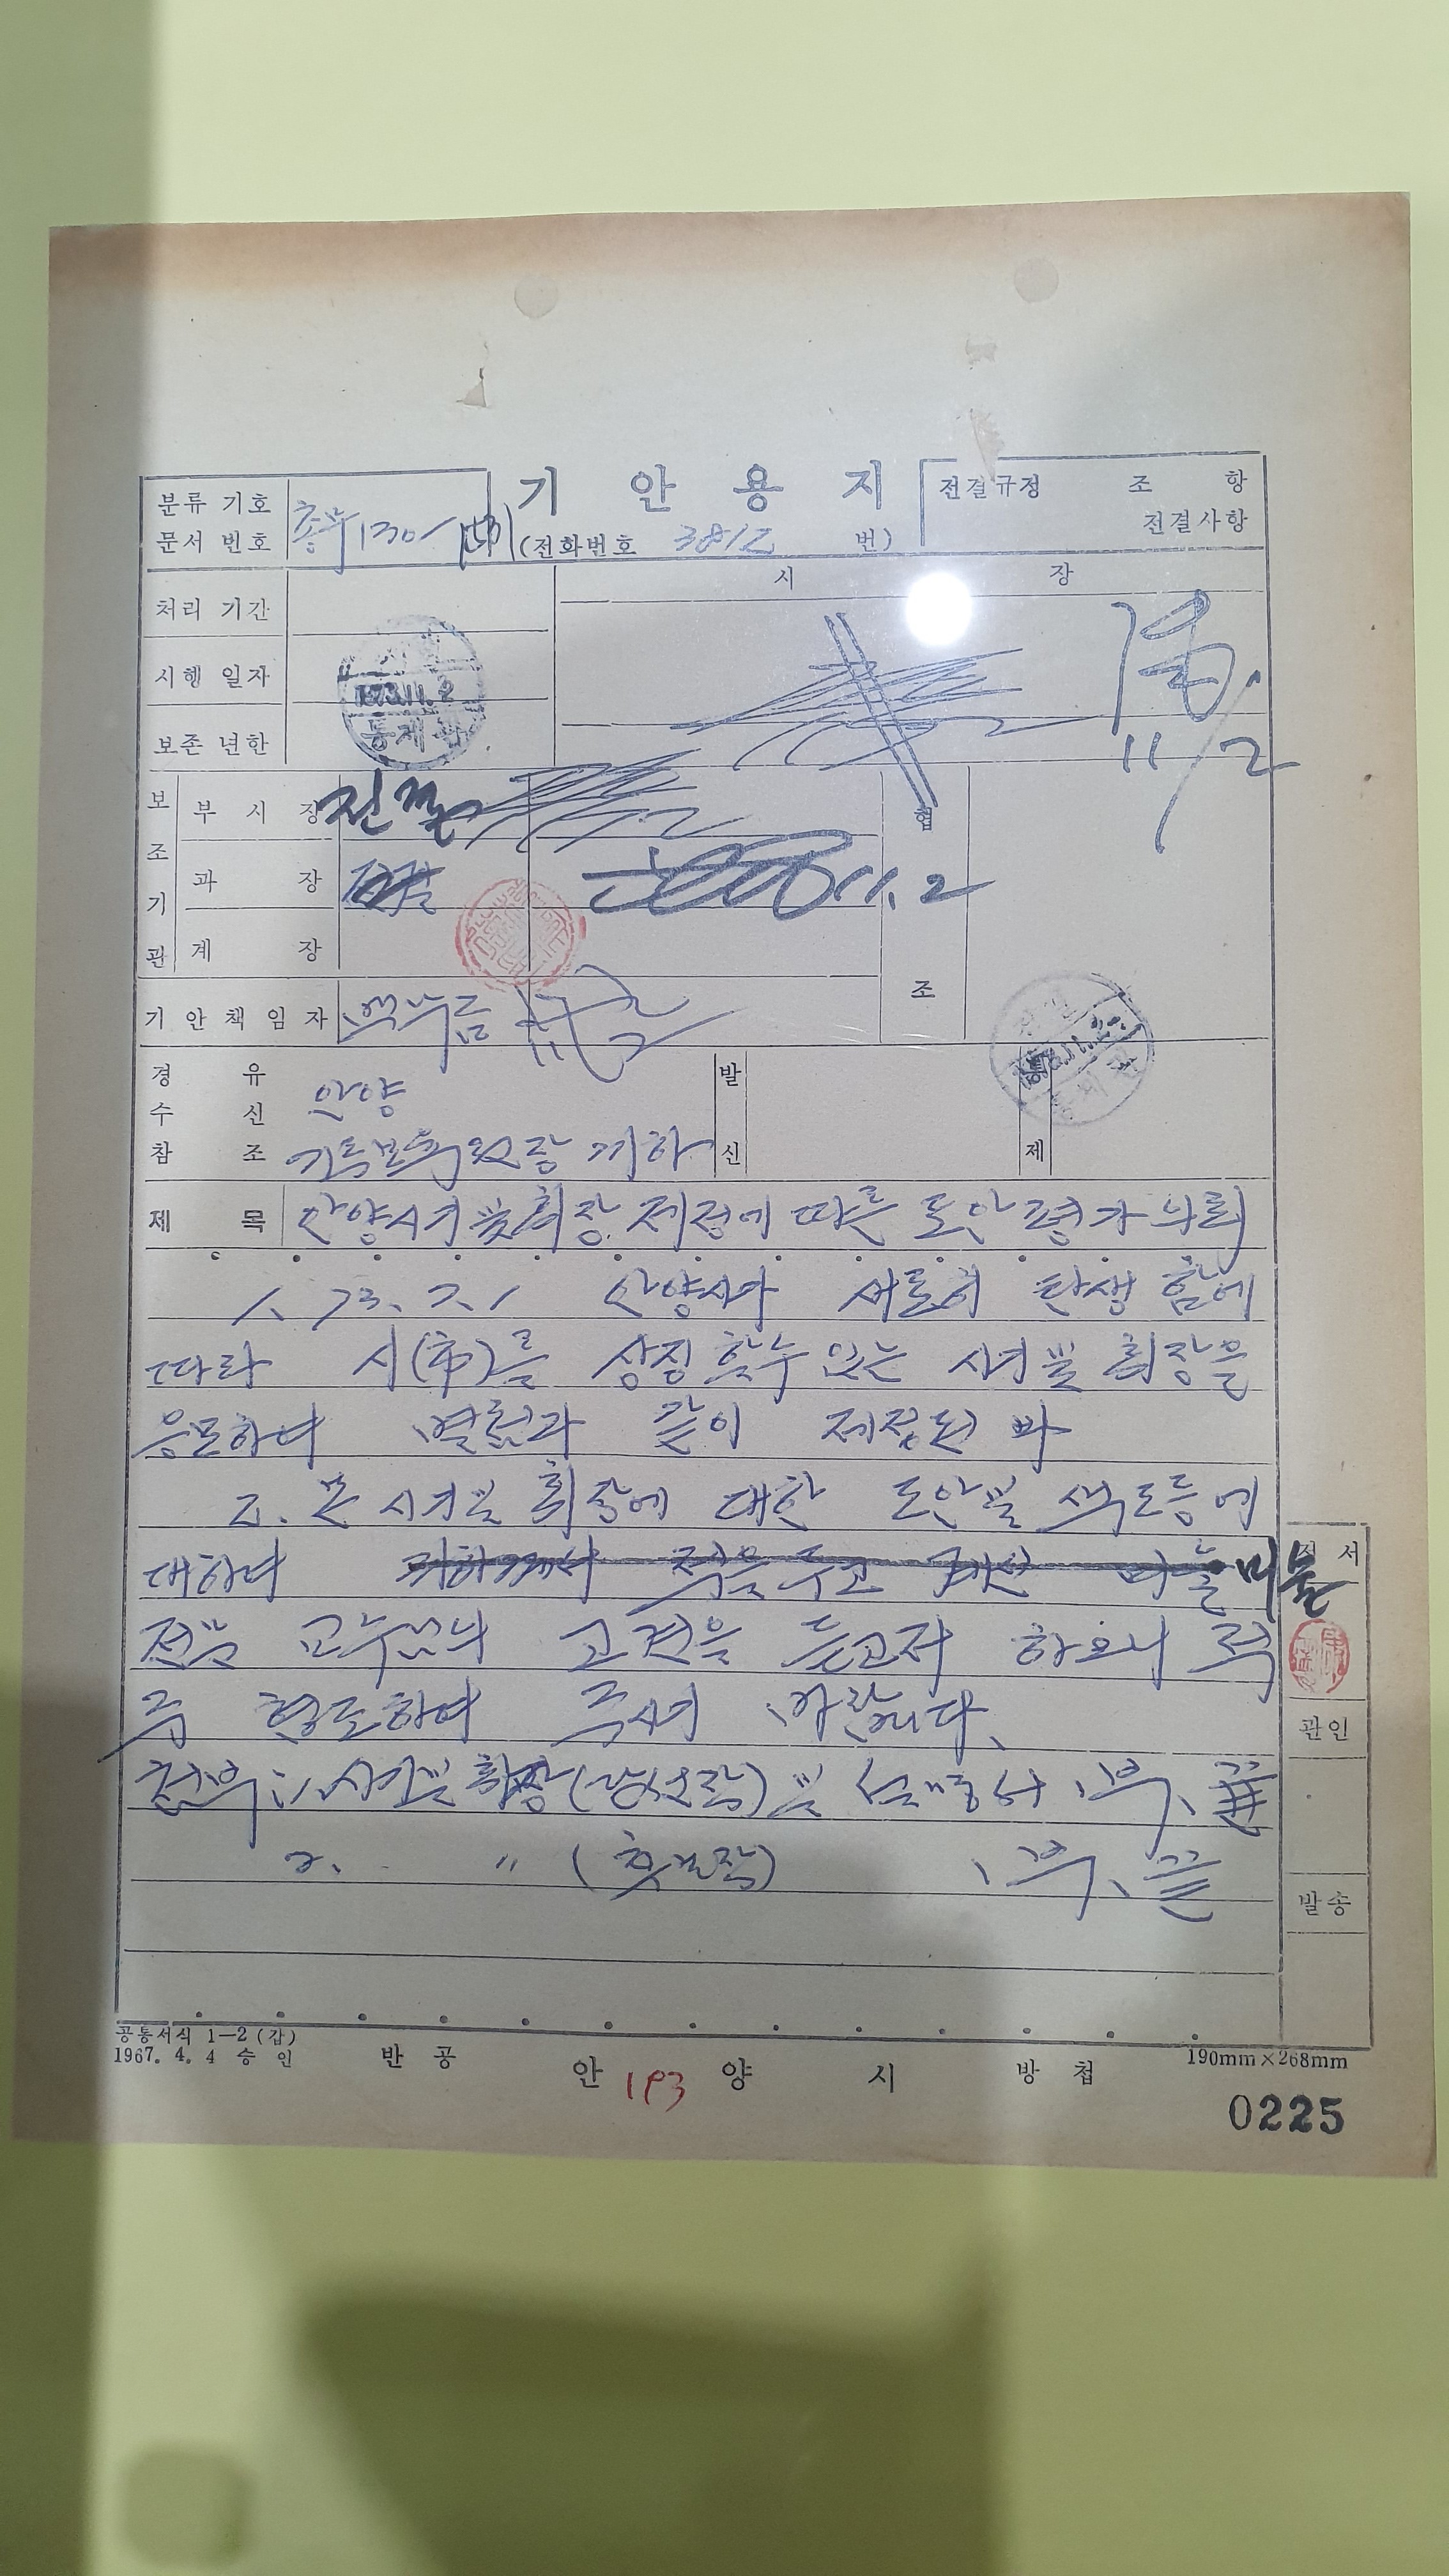 기 안 용 지
분류 기호
문서 번호
총무 130-
(전화번호 3812 번)
전결규정 조 항
전결사항
처리 기간
시행 일자
보존 년한
시 장
1973.11.2
통제관
11/2
보조기관
부 시 장 전결
과 장
11.2
계 장
협 조
기 안 책 임 자
11/2
경 유
수 신 안양
참 조 귀하
발 신
통 제
제 목 안양시기 및 휘장 제정에 따른 도안 평가 의뢰
1. 73. 7. 1 안양시가 새로히 탄생 함에
따라 시(市)를 상징 할수 있는 시기 및 휘장을
응모하여 별첨과 같이 제정된 바
2. 본 시기 및 휘장에 대한 도안 및 색도등에
대하여 미술
전공 교수님의 고견을 듣고저 하오니 적
극 협조하여 주시기 바랍니다.
첨부 : 1. 시기 및 휘장(당선작) 및 설명서 1부,
2. 〃 ( ) 1부, 끝
정 서
관인
발송
공통서식 1-2 (갑)
1967. 4. 4 승 인
반 공
안 양 시
방 첩
190mm×268mm
193
0225